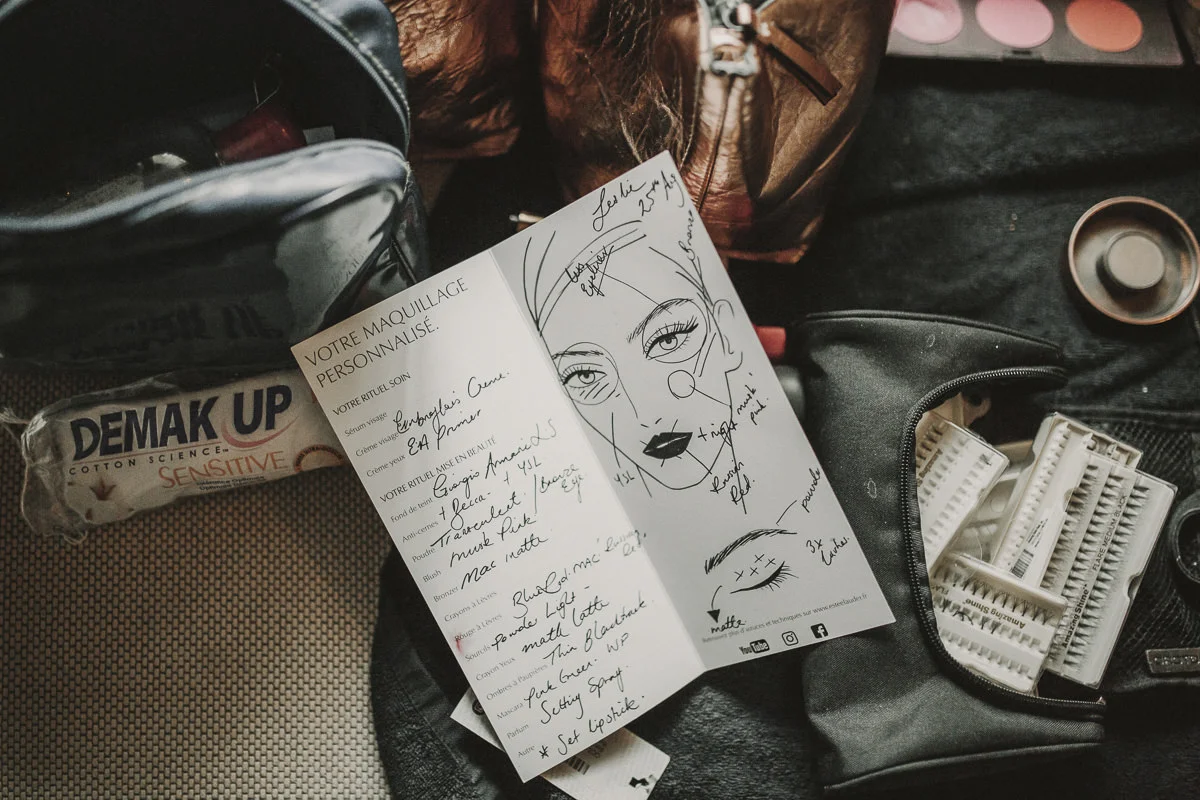 DEMAK UP
COTTON SCIENCE™
SENSITIVE
VOTRE MAQUILLAGE
PERSONNALISÉ.
VOTRE RITUEL SOIN
Sérum visage
Crème visage Embryolis Creme.
Crème yeux EA Primer
VOTRE RITUEL MISE EN BEAUTÉ
Fond de teint Giorgio Armani LS
Anti-cernes + Becca + YSL
Poudre Translucent / Bronze Eye
Blush Musk Pink
Bronzer Mac matte
Crayons à Lèvres
Rouge à Lèvres MAC Russian Red.
Sourcils Powder Light
Crayon Yeux matte latte
Ombres à Paupières Thin Blacktrack.
Mascara Pink Green. WP
Parfum Setting Spray.
Autre * Set lipstick.
Leslie
25 Aug
Bronze
Eyeliner
+ night musk'
pink.
YSL
Russian
Red.
powder
3x
Lashes.
matte
Retrouvez plus d'astuces et techniques sur www.esteelauder.fr
YouTube
Amazing Shine
Amazing Shine
FLARE MEDIUM BLACK